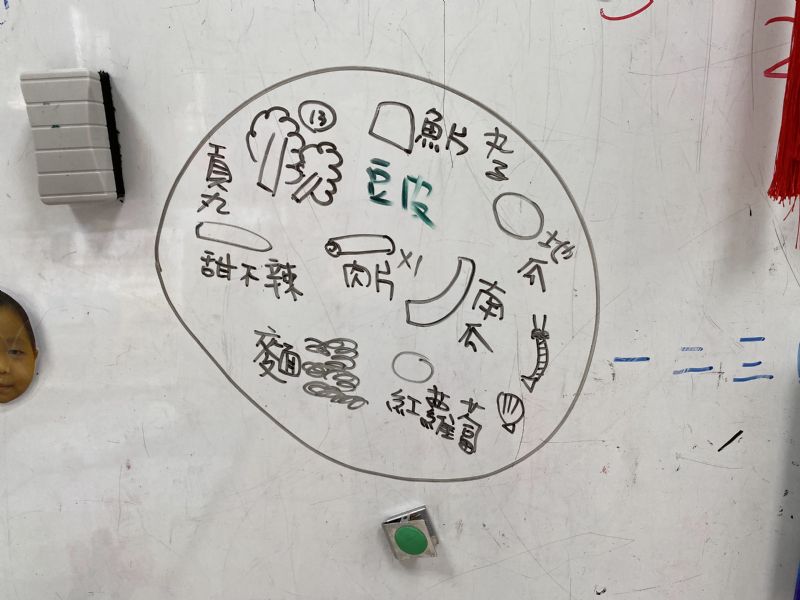 13
魚片
丸子
貢丸
豆皮
地瓜
甜不辣
肉片 X1
南瓜
麵
紅蘿蔔
一 二 三
2